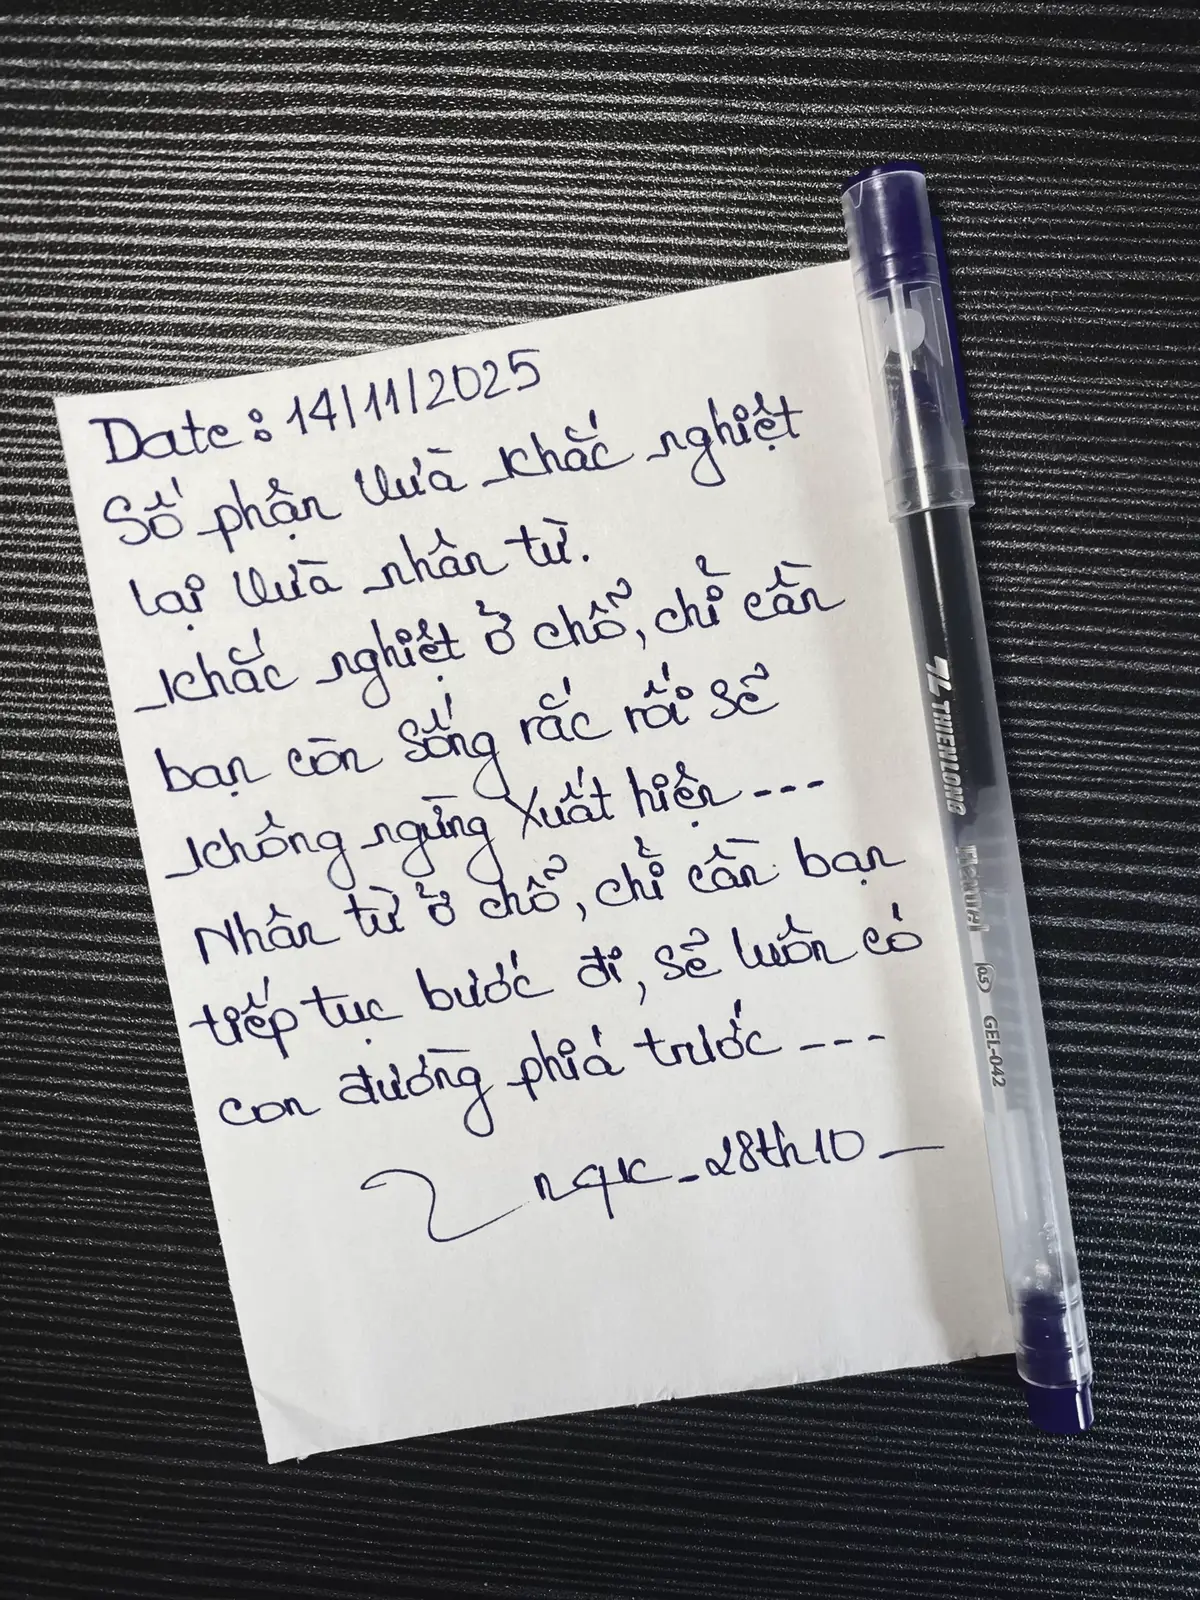 Date: 14/11/2025
Số phận vừa khắc nghiệt
lại vừa nhân từ.
khắc nghiệt ở chỗ, chỉ cần
bạn còn sống rắc rối sẽ
không ngừng xuất hiện ---
Nhân từ ở chỗ, chỉ cần bạn
tiếp tục bước đi, sẽ luôn có
con đường phía trước ---
nquc_28th10_
TL THIEN LONG
0.5 GEL-042